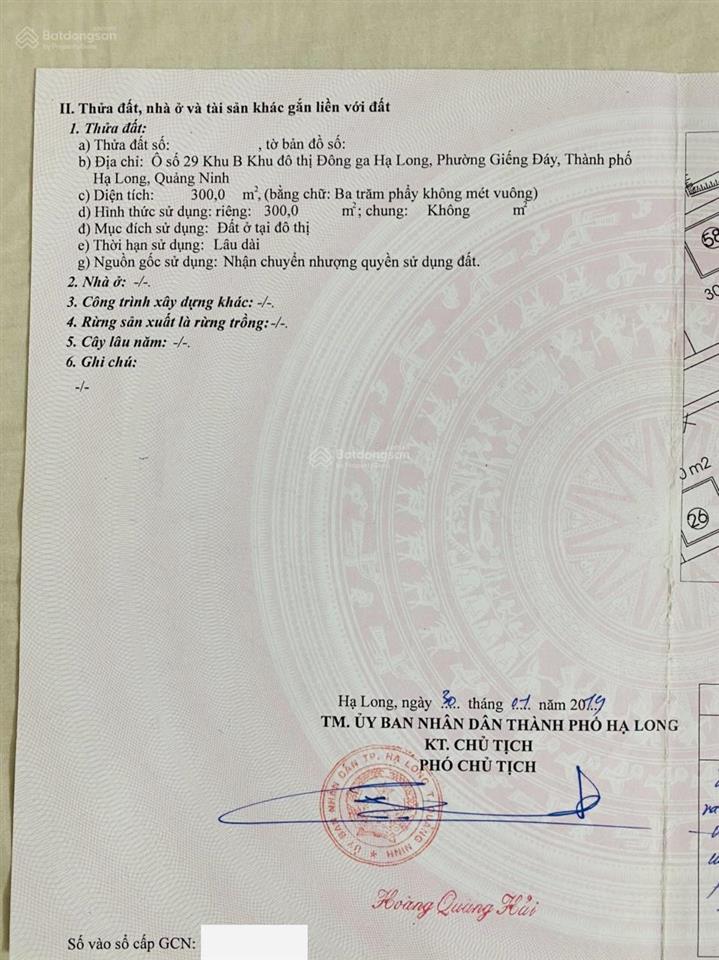 Batdongsan
by PropertyGuru
II. Thửa đất, nhà ở và tài sản khác gắn liền với đất
1. Thửa đất:
a) Thửa đất số: , tờ bản đồ số:
b) Địa chỉ: Ô số 29 Khu B Khu đô thị Đông ga Hạ Long, Phường Giếng Đáy, Thành phố
Hạ Long, Quảng Ninh
c) Diện tích: 300,0 m², (bằng chữ: Ba trăm phẩy không mét vuông)
d) Hình thức sử dụng: riêng: 300,0 m²; chung: Không m²
đ) Mục đích sử dụng: Đất ở tại đô thị
e) Thời hạn sử dụng: Lâu dài
g) Nguồn gốc sử dụng: Nhận chuyển nhượng quyền sử dụng đất.
2. Nhà ở: -/-.
3. Công trình xây dựng khác: -/-.
4. Rừng sản xuất là rừng trồng: -/-.
5. Cây lâu năm: -/-.
6. Ghi chú:
-/-
58
30
Batdongsan
by PropertyGuru
0 m2
26
Hạ Long, ngày 30 tháng 01 năm 2019
TM. ỦY BAN NHÂN DÂN THÀNH PHỐ HẠ LONG
KT. CHỦ TỊCH
PHÓ CHỦ TỊCH
ỦY BAN NHÂN DÂN TP. HẠ LONG T. QUẢNG NINH
Hoàng Quang Hải
Số vào sổ cấp GCN: